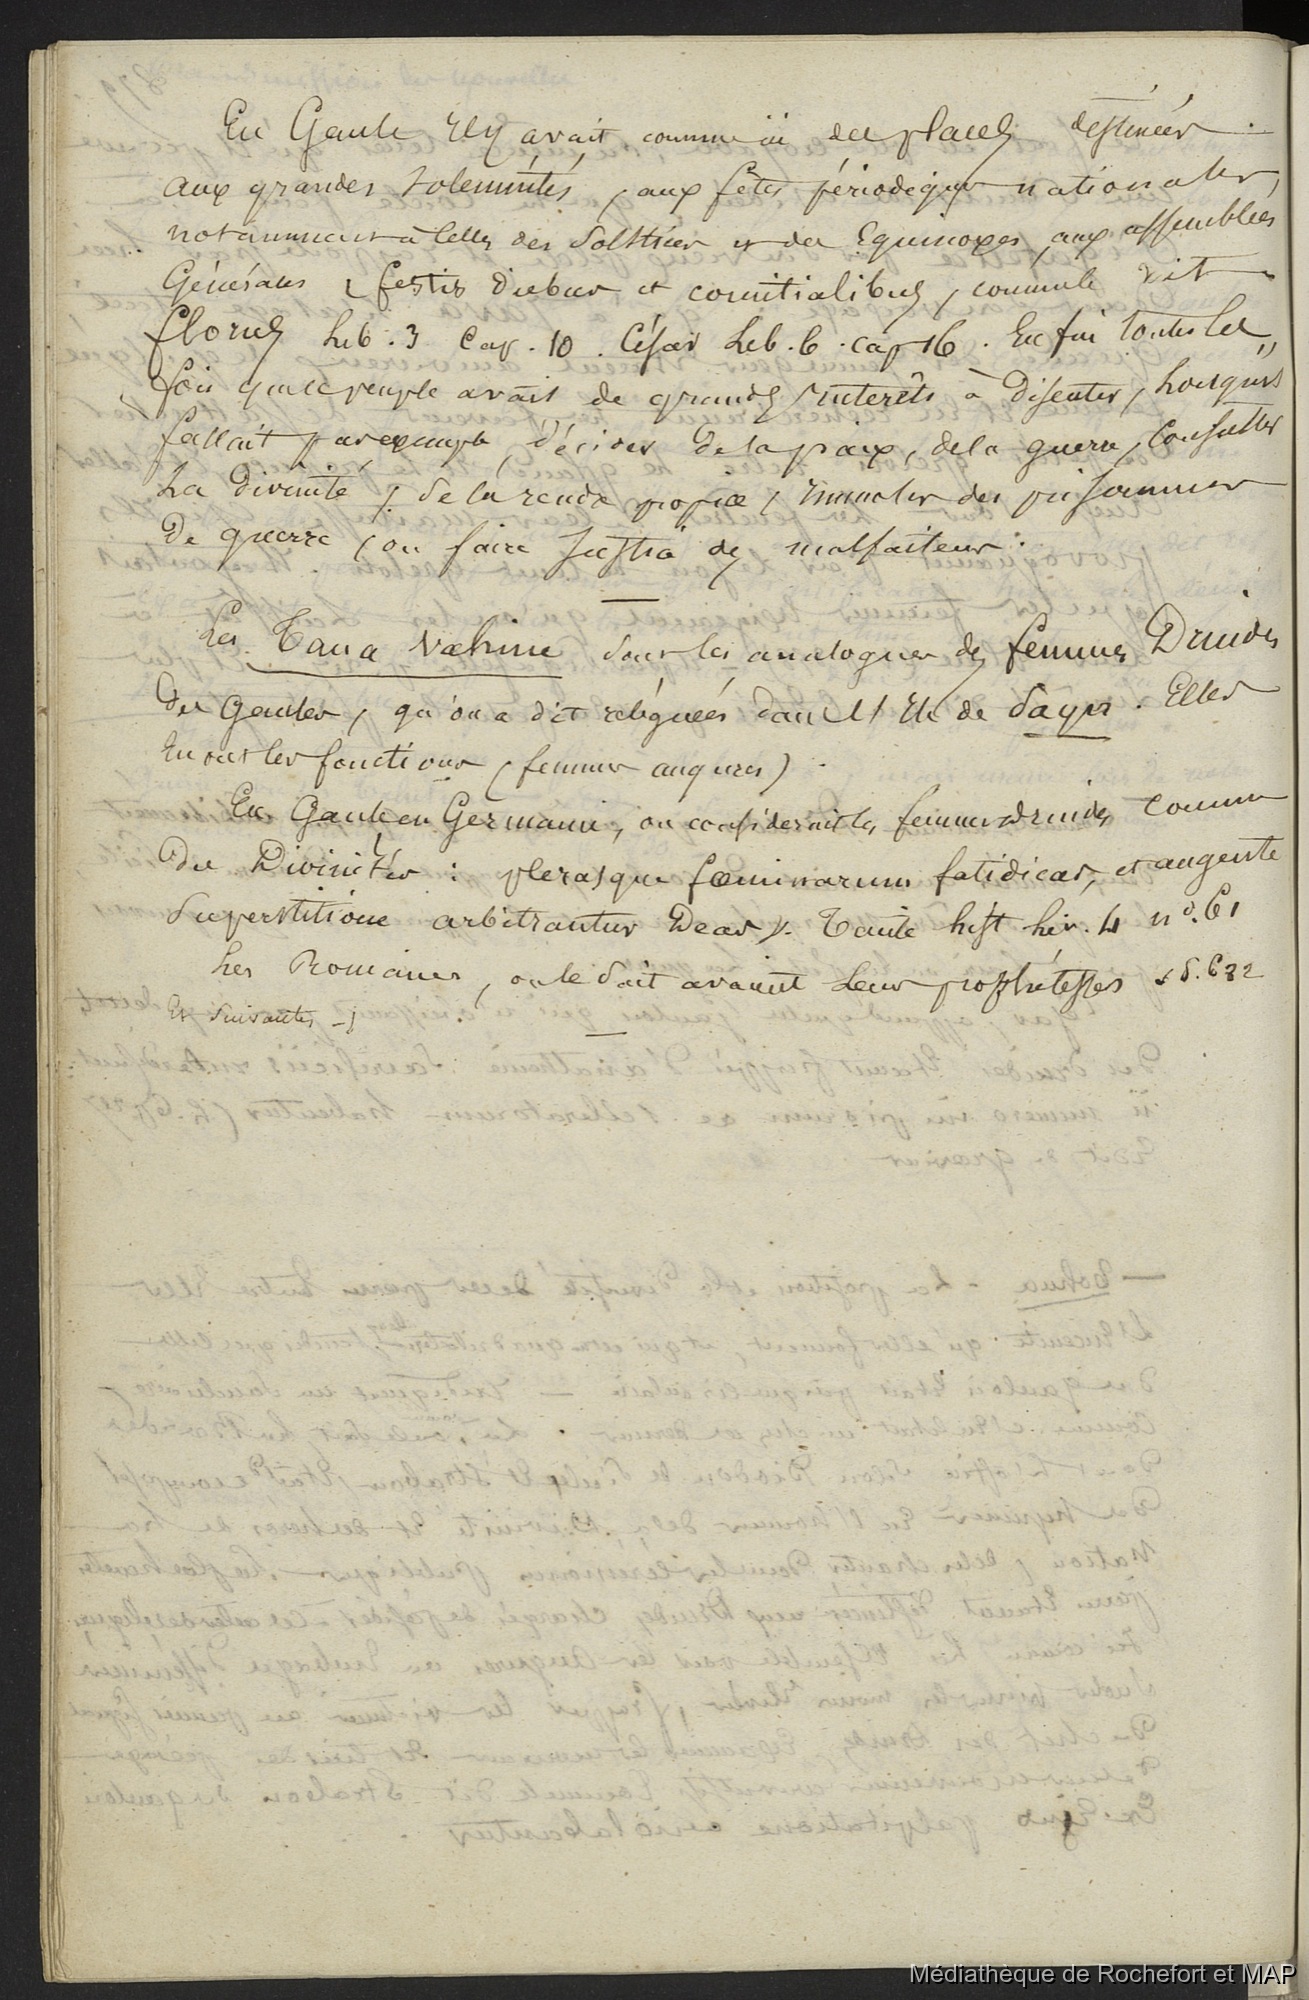 En Gaule Il y avait comme ici des places destinées
aux grandes solemnités, aux fêtes périodiques nationales,
notamment à celles des Solstices et des Equinoxes, aux assemblées
Générales, festis diebus et comitialibus, comme le dit
florus Lib. 3 Cap. 10. César Lib. 6. cap 16. En fin toutes les
fois que le peuple avait de grands Interêts à discuter, Lorsqu'il
fallait par exemple, décider de la paix, de la guerre, Consulter
La divinité, se la rendre propice, Immoler des prisonniers
De guerre, ou faire Justice des malfaiteurs.
Les Taua Vahine sont les analogues des femmes Druides
Des Gaules, qu'on a dit reléguées dans l'Ile de Sayn. Elles
En ont les fonctions (femmes augures)
En Gaule en Germanie, on considerait les femmes druides comme
Des Divinités : plerasque fœminarum fatidicas, et augente
Superstitione arbitrantur Deas. Tacite hist Liv. 4 nº. 61
Les Romains, on le sait avaient Leurs prophétesses
Et Suivantes
Médiathèque de Rochefort et MAP